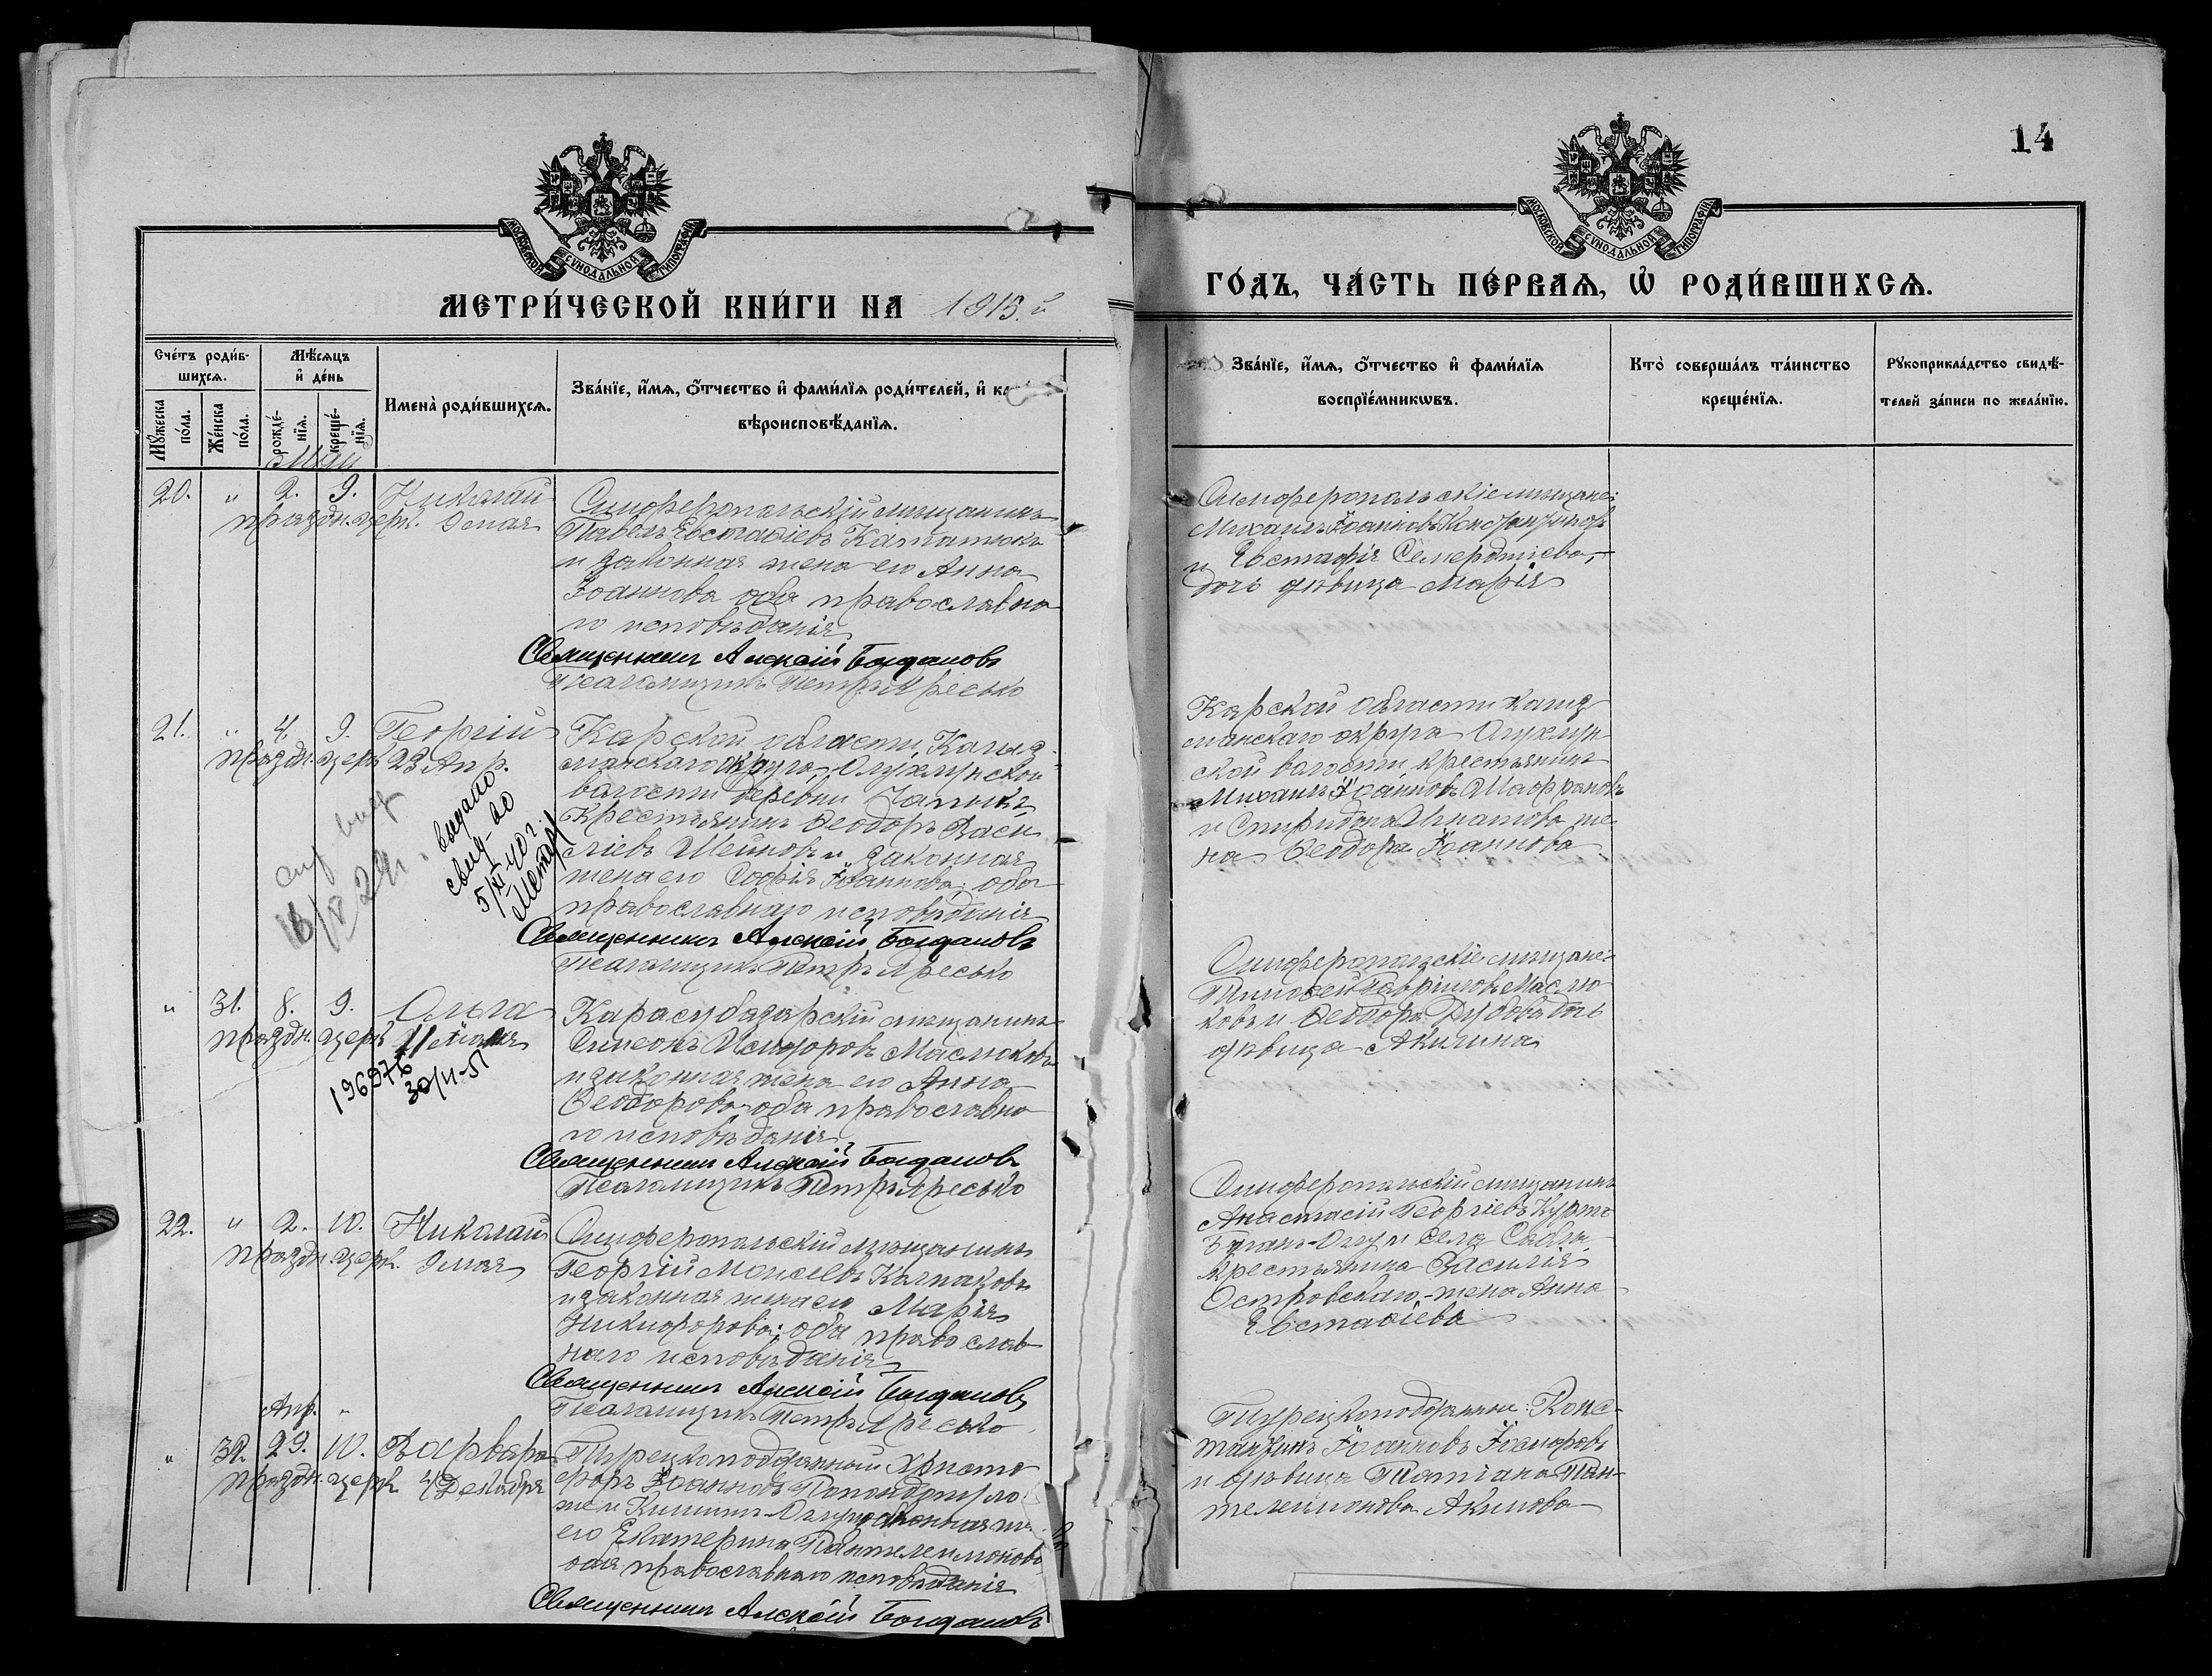 14
МОСКОВСКОЙ СѴНОДАЛЬНОЙ ТИПОГРАФІИ
МЕТРИ́ЧЕСКОЙ КНИ́ГИ НА 1915.й
Сче́тъ роди́в-
шихсѧ.
Мѣ́сѧцъ
и҆ де́нь
Мꙋ́жеска
по́ла.
Же́нска
по́ла.
рожде́-
нїѧ.
креще́-
нїѧ.
Имена̀ роди́вшихсѧ.
Зва́нїе, и҆́мѧ, ѻ҆́тчество и҆ фами́лїѧ роди́телей, и҆
вѣроисповѣ́данїѧ.
Май
20. " 2. 9. Николай
праздн. церк. 9 мая
Симферопольскій мѣщанинъ
Павелъ Евстаѳіевъ
и законная жена его Анна
Іоаннова оба православна
го исповѣданія
Священникъ Алексій Богдановъ
Псаломщикъ Петръ Яресько
21. " 4. 9. Георгій
праздн. церк 23 Апр.
выдано
свид-во
5/XI-40 г.
Карской области, Кагыз-
манскаго округа, Олухлинской
волости деревни
Крестьянинъ Ѳеодоръ Васи
ліевъ и законная
жена его Софія Іоаннова; оба
православнаго исповѣданія
Священникъ Алексій Богдановъ
Псаломщикъ Петръ Яресько
" 31. 8. 9. Ольга
праздн. церк 11 Іюля
196976
30/VI-51
Карасубазарскій мѣщанинъ
Симеонъ Исидоровъ Маслюковъ
и законная жена его Анна
Ѳеодорова оба православна
го исповѣданія
Священникъ Алексій Богдановъ
Псаломщикъ Петръ Яресько
22. " 2. 10. Николай
праздн. церк. 9 мая
Симферопольскій мѣщанинъ
Георгій Моисеевъ Калпаковъ
и законная жена его Марія
Никифорова; оба православ
наго исповѣданія
Священникъ Алексій Богдановъ
Псаломщикъ Петръ Яресько
Апр. "
" 32. 29. 10. Варвара
праздн. церк 4 Декабря
Турецкоподданный Христо
форъ Іоанновъ
законная
его Екатерина Пантелеимонова
православнаго исповѣданія
Священникъ Алексій Богдановъ
МОСКОВСКОЙ СѴНОДАЛЬНОЙ ТИПОГРАФІИ
ГО́ДЪ, ЧА́СТЬ ПЕ́РВАѦ, Ѡ҆ РОДИ́ВШИХСѦ.
Зва́нїе, и҆́мѧ, ѻ҆́тчество и҆ фами́лїѧ
воспрїе́мникѡвъ.
Кто̀ соверша́лъ та́инство
креще́нїѧ.
Рꙋкоприкла́дство свидѣ́-
телей за́писи по жела́нїю.
Симферопольскіе мѣщане:
Михаилъ Іоанновъ Константиновъ
и Евстафія Семерджіева,
дочь дѣвица Марія
Карской области Кагыз
манскаго округа Олухлин
ской волости крестьянинъ
Михаилъ Іоанновъ Шафрановъ
и Спиридона Игнатова же
на Ѳеодора Іоаннова
Симферопольскіе мѣщане:
Тимоѳей Гавріиловъ Маслю
ковъ и Ѳеодора
дѣвица Акилина
Симферопольскій мѣщанинъ
Анастасій Георгіевъ Курто
Оглу и села Саблы
крестьянина Василія
Островскаго, жена Анна
Евстаѳіева
Турецкоподданные: Конс-
тантинъ Іоанновъ
и дѣвица Татіана Пан-
телеимонова Акимова